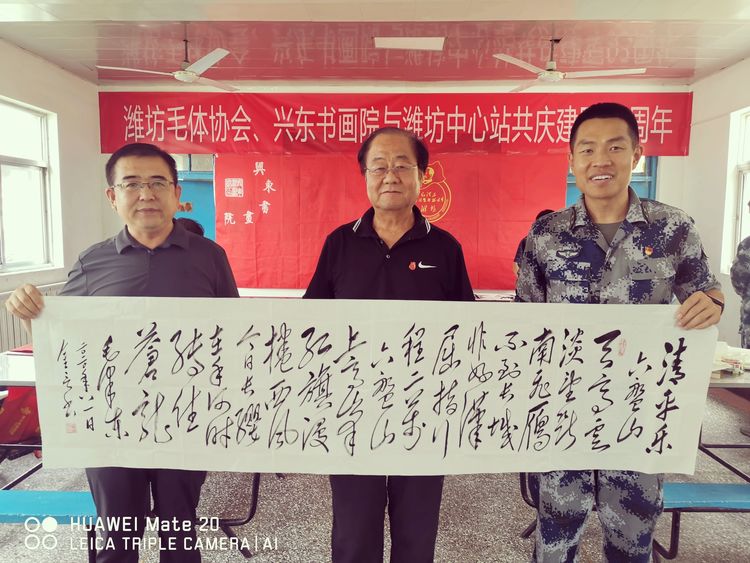 潍坊毛体协会、兴东书画院与潍坊中心站共庆建
周年
興東書
畫院
清平乐
六盤山
天高云
淡望断
南飞雁
不到长城
非好漢
屈指行
程二万
六盤山
上高峰
红旗漫
捲西风
今日长缨
在手何时
缚住
蒼龙
毛泽东
HUAWEI Mate 20
LEICA TRIPLE CAMERA | AI